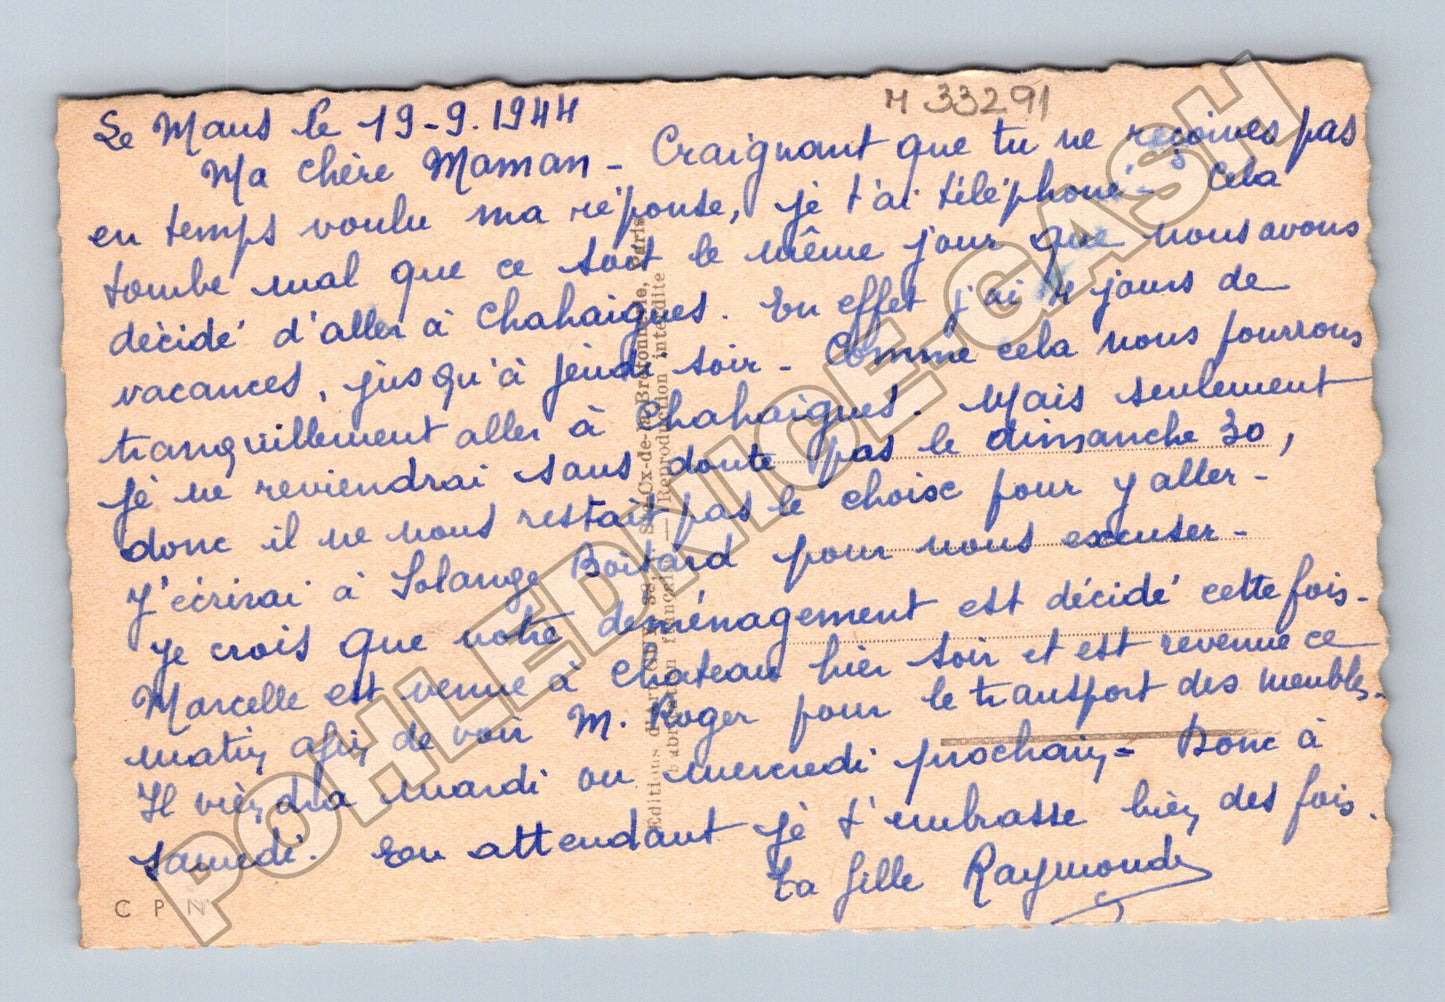 M 33291
Le Mans le 19-9.1944
Ma chère Maman - Craignant que tu ne reçoives pas
en temps voulu ma réponse, je t'ai téléphoné - Cela
tombe mal que ce soit le même jour que nous avons
décidé d'aller à Chahaignes. En effet j'ai 4 jours de
vacances, jusqu'à jeudi soir - Comme cela nous pourrons
tranquillement aller à Chahaignes. Mais seulement
je ne reviendrai sans doute pas le dimanche 30,
donc il ne nous restait pas le choix pour y aller -
J'écrirai à Solange Boitard pour nous excuser -
Je crois que notre déménagement est décidé cette fois -
Marcelle est venue à Chateau hier soir et est revenue ce
matin afin de voir M. Roger pour le transport des meubles -
Il viendra mardi ou mercredi prochain - Donc à
samedi. En attendant je t'embrasse bien des fois.
Ta fille Raymonde
C P N
Reproduction interdite
POHLEDNICE-CASH